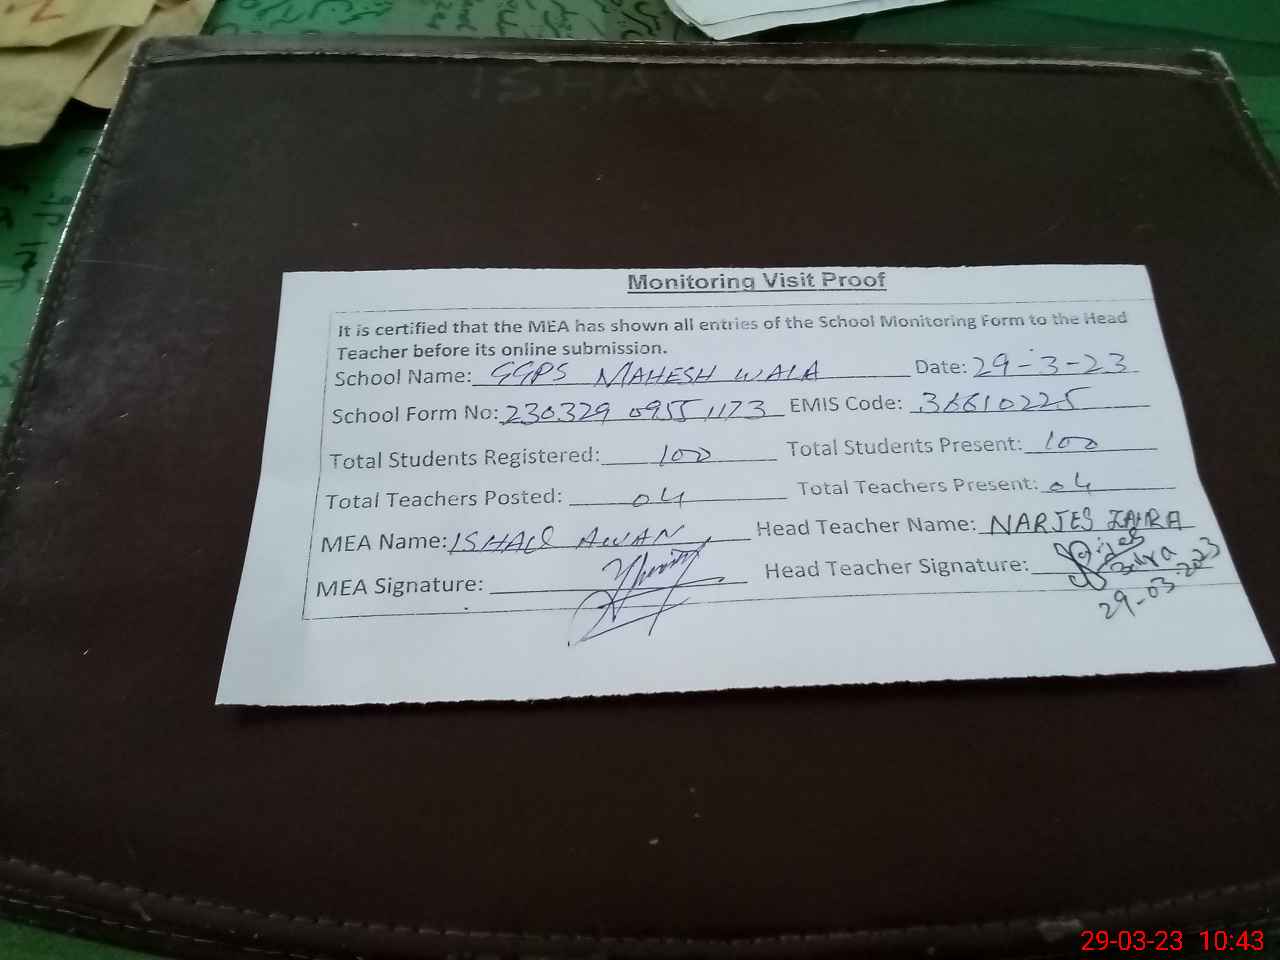 ISHAQ A
Monitoring Visit Proof
It is certified that the MEA has shown all entries of the School Monitoring Form to the Head
Teacher before its online submission.
School Name: GGPS MAHESH WALA Date: 29-3-23
School Form No: 230329 0955 1173 EMIS Code: 36610225
Total Students Registered: 100 Total Students Present: 100
Total Teachers Posted: 04 Total Teachers Present: 04
MEA Name: ISHAQ AWAN Head Teacher Name: NARJES ZAHRA
MEA Signature: Head Teacher Signature:
29-03-2023
29-03-23 10:43